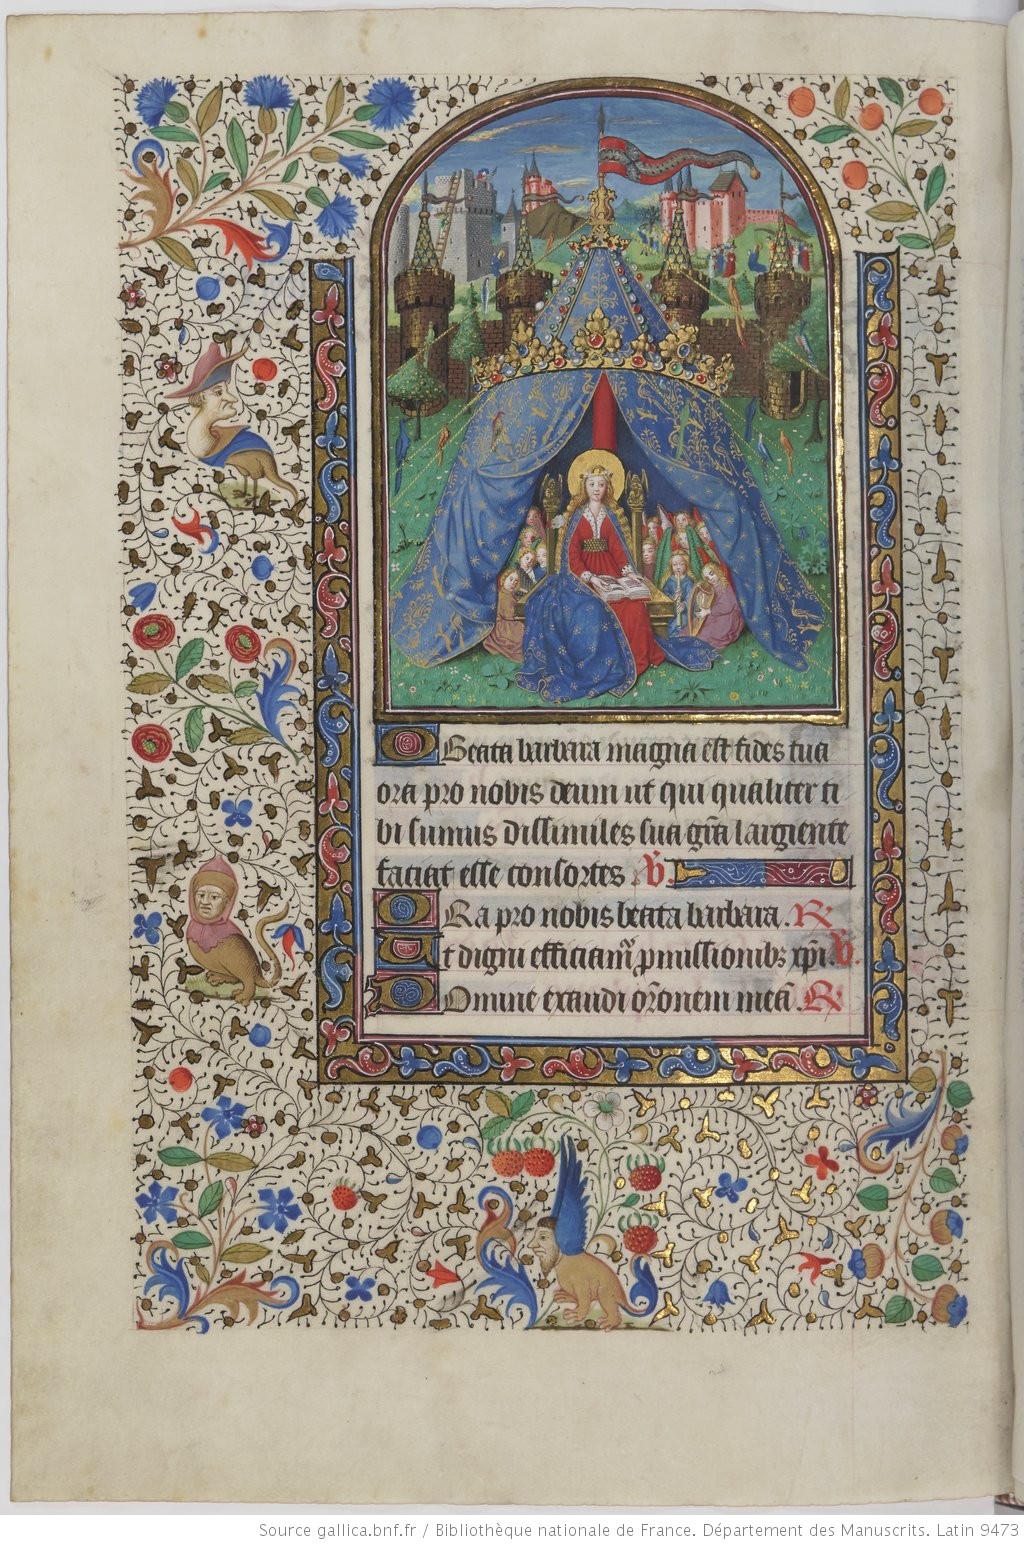 O Beata barbara magna est fides tua
ora pro nobis deum ut qui qualiter ti
bi sumus dissimiles sua gr̃a largiente
faciat esse consortes . V̉.
ORa pro nobis beata barbara . R̸
Et digni efficiam̃ ꝓmissionibꝫ xp̃i . V̉.
Domine exaudi or̃onem meã . R̸
Source gallica.bnf.fr / Bibliothèque nationale de France. Département des Manuscrits. Latin 9473